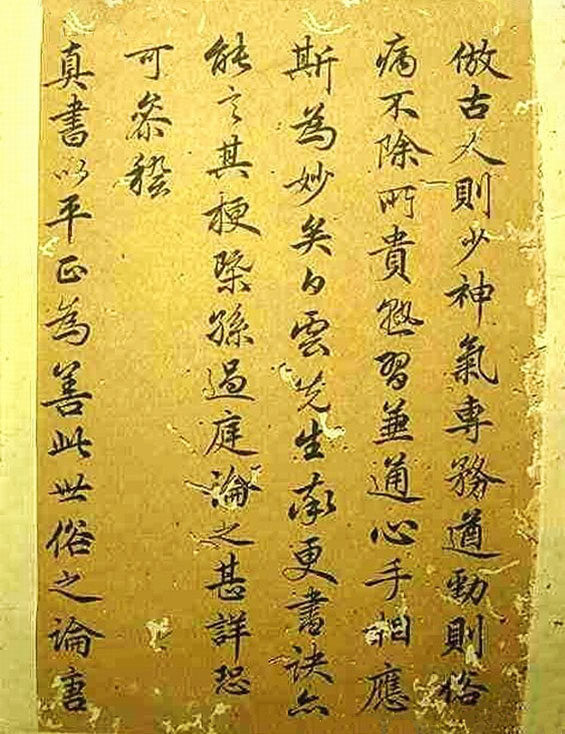 倣古人則少神氣專務遒勁則俗
病不除所貴熟習兼通心手相應
斯為妙矣白雲先生率更書訣亦
能言其梗槩孫過庭論之甚詳恐
可叅稽
真書以平正為善此世俗之論唐